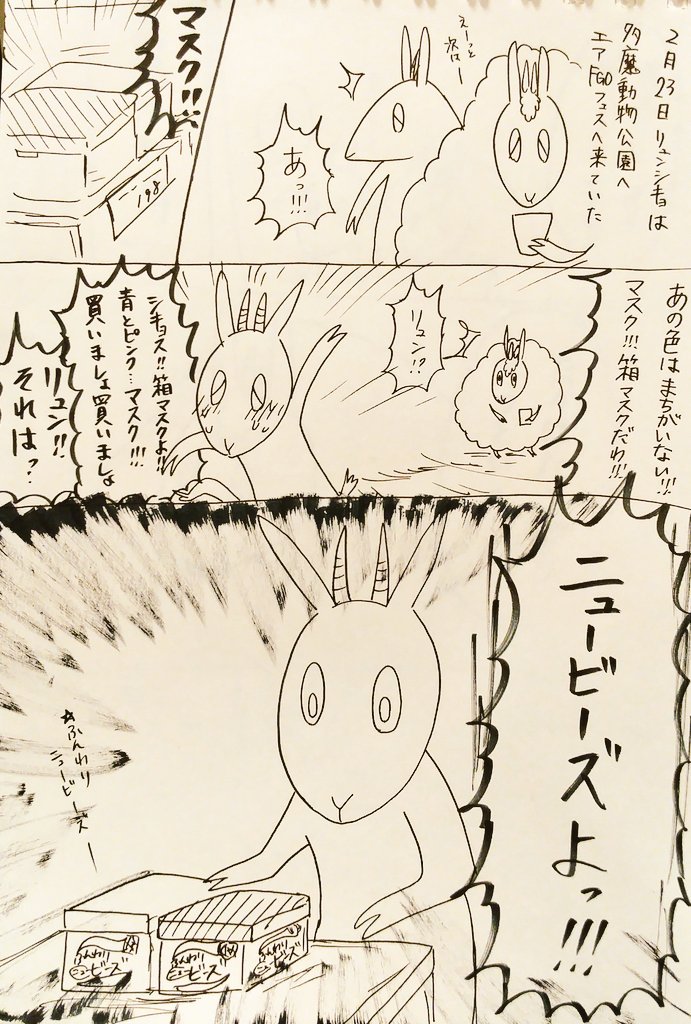 2月23日リュンシキョは
多摩動物公園へ
エアFGOフェスへ来ていた
えーっと
次はー
あっ!!!
マスク!!
198
あの色はまちがいない!!!
マスク!!!箱マスクだわ!!!
リュン!?
シキョス!!箱マスクよ!!
青とピンク…マスク!!!
買いましょ買いましょ
リュン!!
それはっ?
ニュービーズよっ!!!
☆ふんわり
ニュービーズー
ふんわり
ニュービーズ
ふんわり
ニュービーズ
ふんわり
ニュービーズ